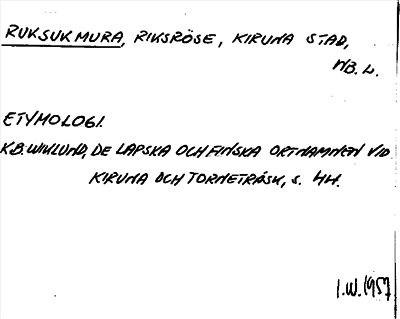 RUKSUKMURA, RIKSRÖSE, KIRUNA STAD,
NB. L.
ETYMOLOGI.
K.B. WIKLUND, DE LAPSKA OCH FINSKA ORTNAMNEN VID
KIRUNA OCH TORNETRÄSK, S. 44.
I.W. 1957